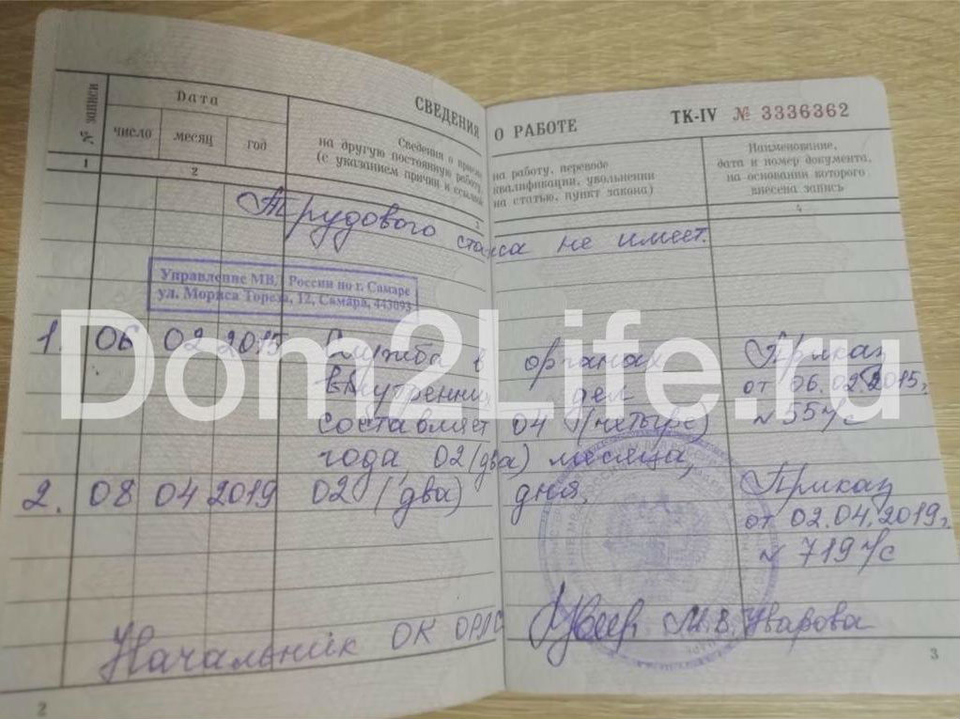 СВЕДЕНИЯ О РАБОТЕ
ТК-IV № 3336362
№ записи
Дата
число месяц год
Сведения о приеме
на другую постоянную работу,
(с указанием причин и ссылкой
на работу, переводе
квалификации, увольнении
на статью, пункт закона)
Наименование,
дата и номер документа,
на основании которого
внесена запись
1 2 3 4
Трудового стажа не имеет.
Управление МВД России по г. Самаре
ул. Мориса Тореза, 12, Самара, 443093
Dom2Life.ru
1. 06 02 2015 Служба в органах Приказ
внутренних дел от 06.02.2015г.
составляет 04 (четыре) № 55 л/с
года, 02 (два) месяца,
2. 08 04 2019 02 (два) дня. Приказ
от 02.04.2019г.
№ 719 л/с
Начальник ОК ОРЛС М.В. Уварова
2
3